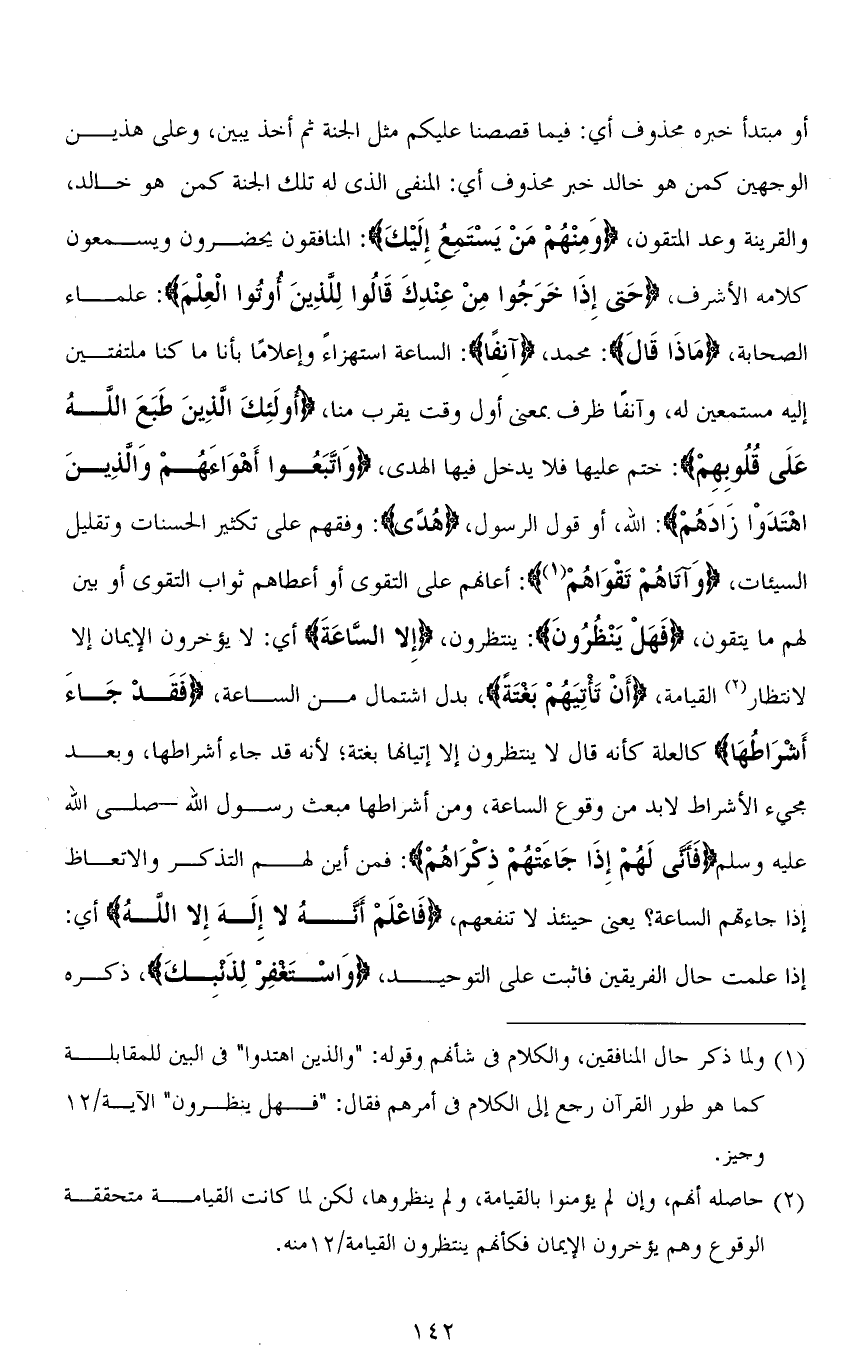 أو مبتدأ خبره محذوف أي: فيما قصصنا عليكم مثل الجنة ثم أخذ يبين، وعلى هذين
الوجهين كمن هو خالد خبر محذوف أي: المنفى الذى له تلك الجنة كمن هو خالد،
والقرينة وعد المتقون، ﴿وَمِنْهُمْ مَنْ يَسْتَمِعُ إِلَيْكَ﴾: المنافقون يحضرون ويسمعون
كلامه الأشرف، ﴿حَتى إِذَا خَرَجُوا مِنْ عِنْدِكَ قَالُوا لِلَّذِينَ أُوتُوا الْعِلْمَ﴾: علماء
الصحابة، ﴿مَاذَا قَالَ﴾: محمد، ﴿آنِفًا﴾: الساعة استهزاءً وإعلامًا بأنا ما كنا ملتفتين
إليه مستمعين له، وآنفًا ظرف بمعنى أول وقت يقرب منا، ﴿أُولَئِكَ الَّذِينَ طَبَعَ اللَّهُ
عَلَى قُلُوبِهِمْ﴾: ختم عليها فلا يدخل فيها الهدى، ﴿وَاتَّبَعُوا أَهْوَاءَهُمْ وَالَّذِينَ
اهْتَدَوْا زَادَهُمْ﴾: الله، أو قول الرسول، ﴿هُدًى﴾: وفقهم على تكثير الحسنات وتقليل
السيئات، ﴿وَآتَاهُمْ تَقْوَاهُمْ(١)﴾: أعانهم على التقوى أو أعطاهم ثواب التقوى أو بين
لهم ما يتقون، ﴿فَهَلْ يَنْظُرُونَ﴾: ينتظرون، ﴿إِلا السَّاعَةَ﴾ أي: لا يؤخرون الإيمان إلا
لانتظار(٢) القيامة، ﴿أَنْ تَأْتِيَهُمْ بَغْتَةً﴾، بدل اشتمال من الساعة، ﴿فَقَدْ جَاءَ
أَشْرَاطُهَا﴾ كالعلة كأنه قال لا ينتظرون إلا إتيانها بغتة؛ لأنه قد جاء أشراطها، وبعد
مجيء الأشراط لابد من وقوع الساعة، ومن أشراطها مبعث رسول الله -صلى الله
عليه وسلم﴿فَأَنَّى لَهُمْ إِذَا جَاءَتْهُمْ ذِكْرَاهُمْ﴾: فمن أين لهم التذكر والاتعاظ
إذا جاءتهم الساعة؟ يعنى حينئذ لا تنفعهم، ﴿فَاعْلَمْ أَنَّهُ لا إِلَهَ إِلا اللَّهُ﴾ أي:
إذا علمت حال الفريقين فاثبت على التوحيد، ﴿وَاسْتَغْفِرْ لِذَنْبِكَ﴾، ذكره
(١) ولما ذكر حال المنافقين، والكلام فى شأنهم وقوله: "والذين اهتدوا" فى البين للمقابلة
كما هو طور القرآن رجع إلى الكلام فى أمرهم فقال: "فهل ينظرون" الآية/١٢
وجيز.
(٢) حاصله أنهم، وإن لم يؤمنوا بالقيامة، ولم ينظروها، لكن لما كانت القيامة متحققة
الوقوع وهم يؤخرون الإيمان فكأنهم ينتظرون القيامة/١٢منه.
١٤٢